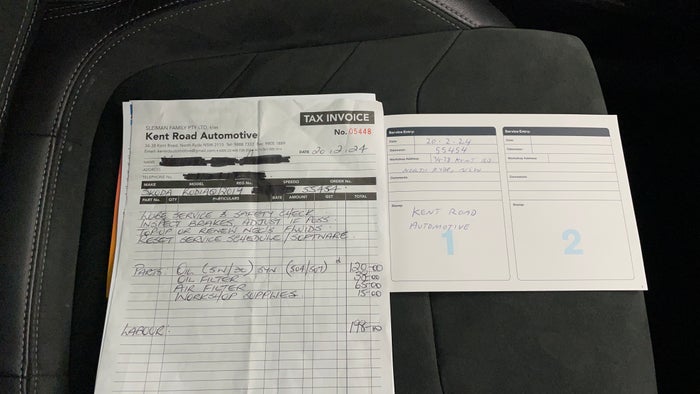 TAX INVOICE
SLEIMAN FAMILY PTY LTD
Kent Road Automotive
No. 05448
34-38 Kent Road, North Ryde NSW 2113
DATE 20.2.24
NAME
ADDRESS
TELEPHONE No.
MAKE MODEL REG No. SPEEDO ORDER No.
SKODA KODIAQ 2019 55454
PART No. QTY PARTICULARS RATE AMOUNT GST TOTAL
LUBE SERVICE & SAFETY CHECK
INSPECT BRAKES, ADJUST IF POSS
TOP-UP OR RENEW NEC'S FLUIDS
RESET SERVICE SCHEDULE / SOFTWARE.
PARTS OIL (5W/30) SYN (504/507) 120-00
OIL FILTER
AIR FILTER 65-00
WORKSHOP SUPPLIES 15-00
LABOUR: 198-00
Service Entry:
Date: 20-2-24
Odometer: 55454
Workshop Address: 34-38 KENT RD
NORTH RYDE, NSW
Comments:
Stamp:
KENT ROAD
AUTOMOTIVE
1
Service Entry:
Date:
Odometer:
Workshop Address:
Comments:
Stamp:
2